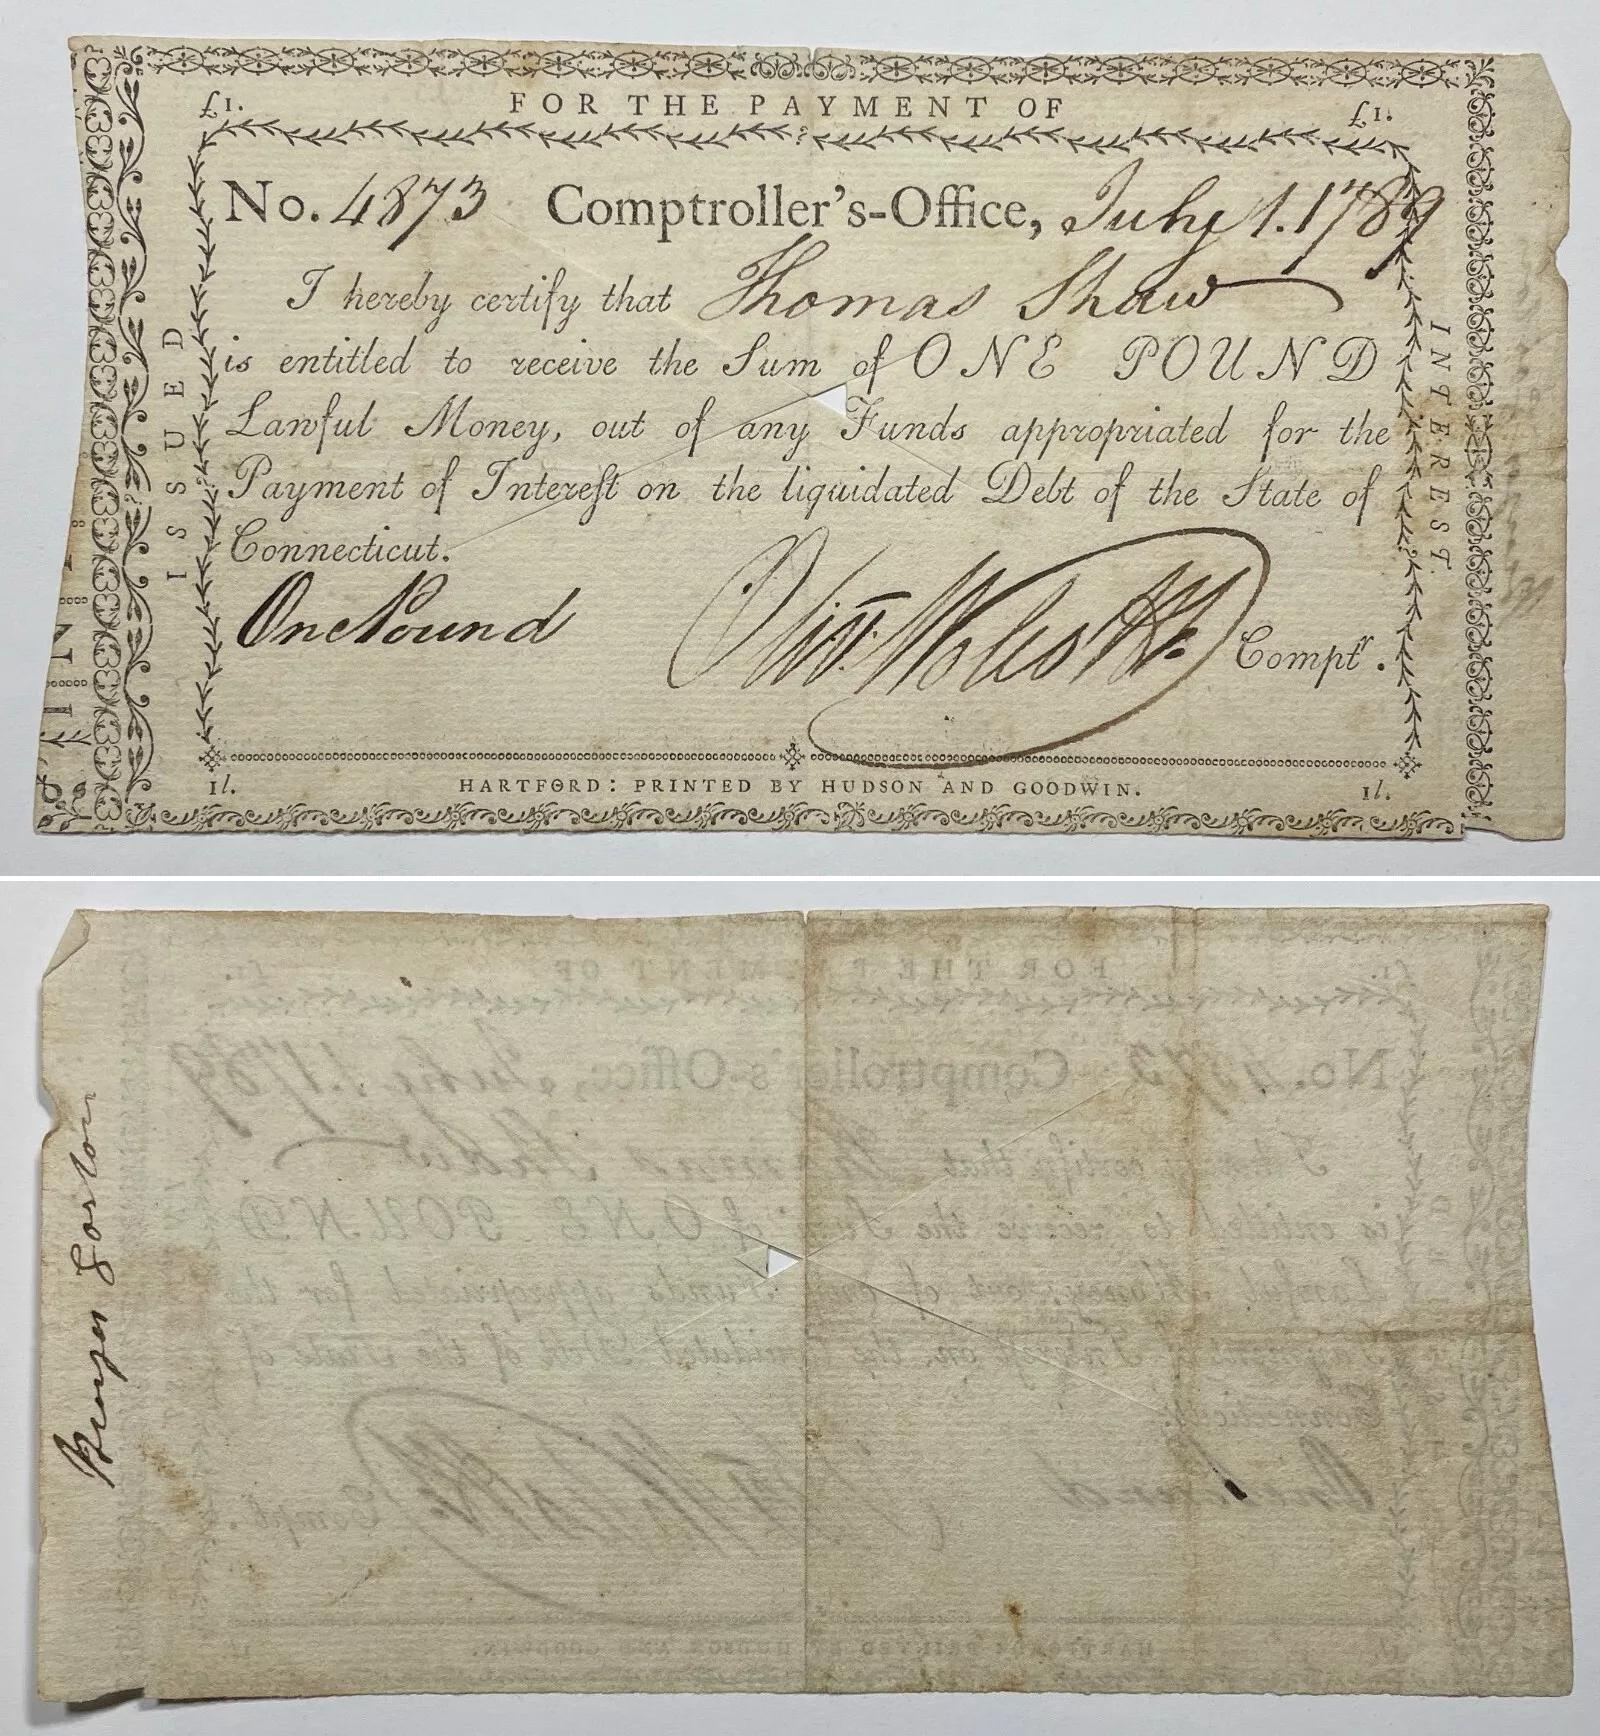 £1. FOR THE PAYMENT OF £1.
No. 4873 Comptroller's-Office, July 1. 1789
I hereby certify that Thomas Shaw
is entitled to receive the Sum of ONE POUND
Lawful Money, out of any Funds appropriated for the
Payment of Interest on the liquidated Debt of the State of
Connecticut.
One Pound
Olivr. Wolcott Jr. Comptr.
1l. HARTFORD: PRINTED BY HUDSON AND GOODWIN. 1l.
ISSUED
INTEREST.